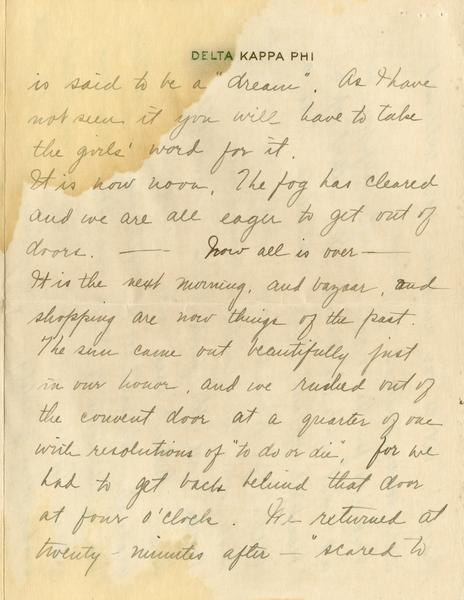 DELTA KAPPA PHI
is said to be a "dream". As I have
not seen it you will have to take
the girls' word for it.
It is now noon. The fog has cleared
and we are all eager to get out of
doors. — Now all is over —
It is the next morning, and bazaar, and
shopping are now things of the past.
The sun came out beautifully just
in our honor, and we rushed out of
the convent door at a quarter of one
with resolutions of "to do or die", for we
had to get back behind that door
at four o'clock. We returned at
twenty-minutes after — "scared to